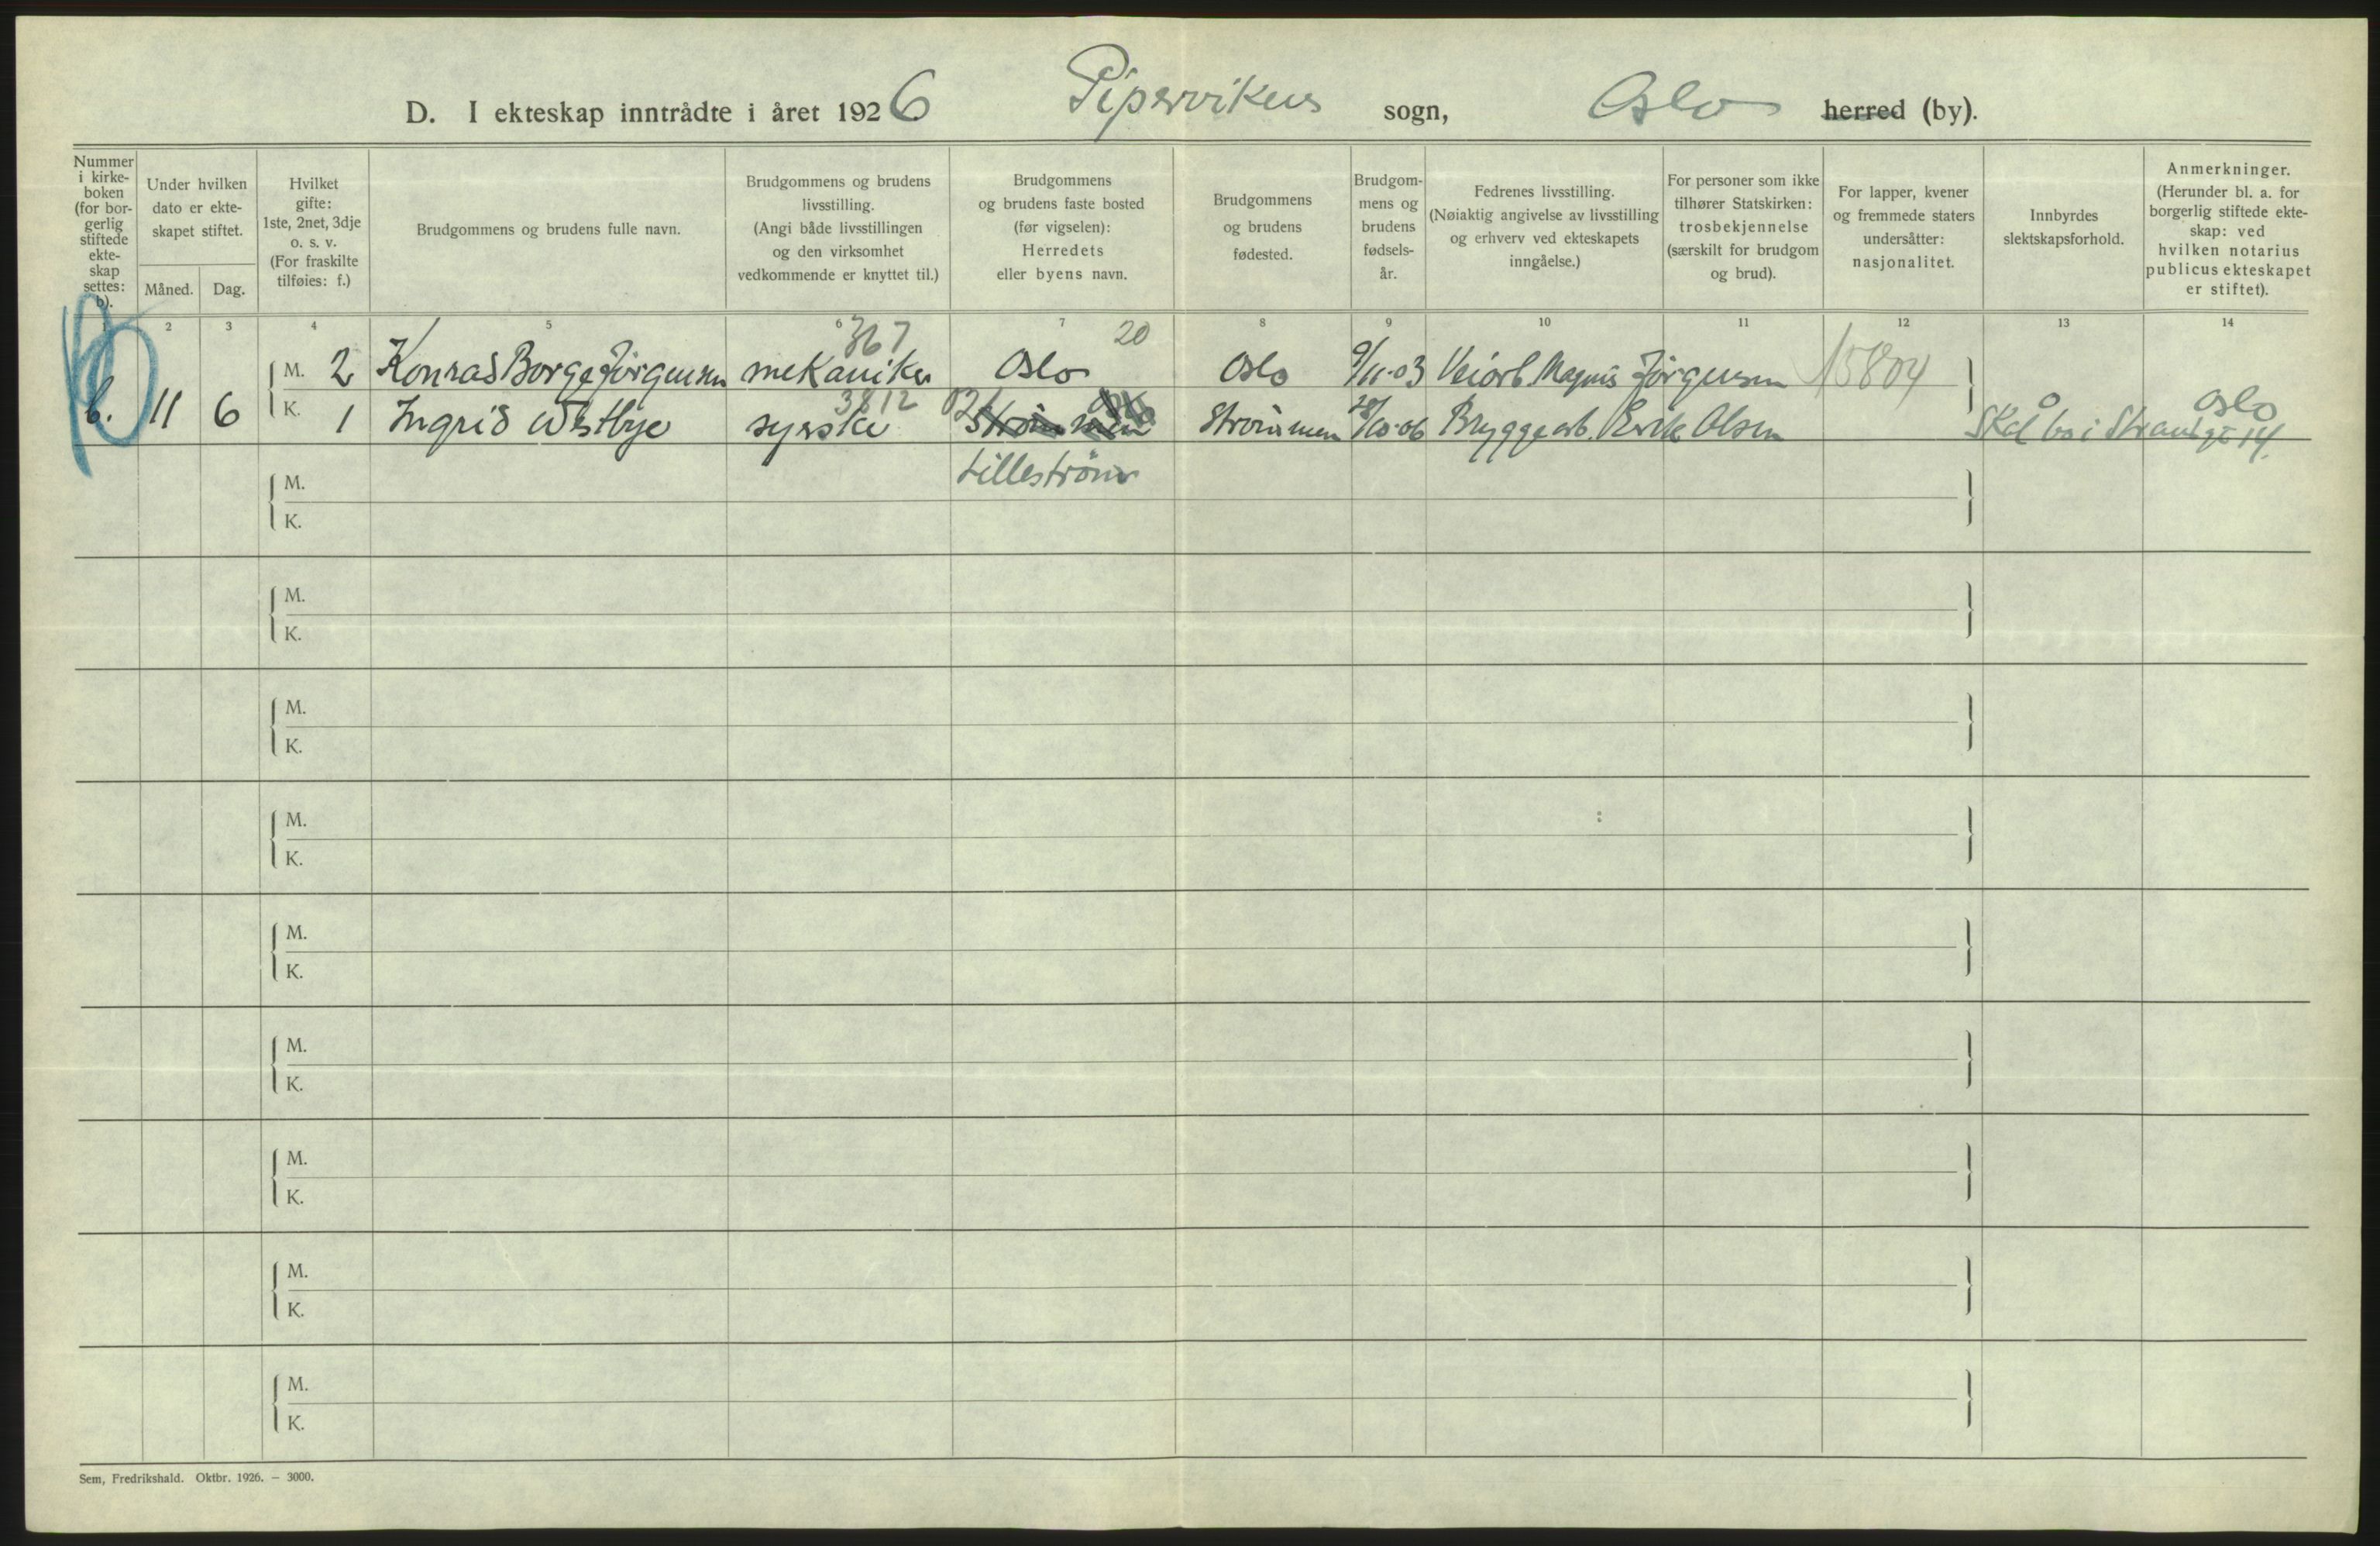 D. I ekteskap inntrådte i året 1926 Pipervikens sogn, Oslo herred (by).
Nummer
i kirke-
boken
(for bor-
gerlig
stiftede
ekte-
skap
settes:
b).
Under hvilken
dato er ekte-
skapet stiftet.
Måned. Dag.
Hvilket
gifte:
1ste, 2net, 3dje
o. s. v.
(For fraskilte
tilføies: f.)
Brudgommens og brudens fulle navn.
Brudgommens og brudens
livsstilling.
(Angi både livsstillingen
og den virksomhet
vedkommende er knyttet til.)
Brudgommens
og brudens faste bosted
(før vigselen):
Herredets
eller byens navn.
Brudgommens
og brudens
fødested.
Brudgom-
mens og
brudens
fødsels-
år.
Fedrenes livsstilling.
(Nøiaktig angivelse av livsstilling
og erhverv ved ekteskapets
inngåelse.)
For personer som ikke
tilhører Statskirken:
trosbekjennelse
(særskilt for brudgom
og brud).
For lapper, kvener
og fremmede staters
undersåtter:
nasjonalitet.
Innbyrdes
slektskapsforhold.
Anmerkninger.
(Herunder bl. a. for
borgerlig stiftede ekte-
skap: ved
hvilken notarius
publicus ekteskapet
er stiftet).
1 2 3 4 5 6 7 8 9 10 11 12 13 14
367 20
M. 2 Konrad Borge Jörgensen mekaniker Oslo Oslo 9/11-03 Veiarb. Magnus Jörgensen 15804
3812 Oslo
b. 11 6 K. 1 Ingrid Westbye syerske Strömmen Strömmen 28/10-06 Bryggearb. Erik Olsen Skal bo i Strandgt 14.
Lilleström
M.
K.
M.
K.
M.
K.
M.
K.
M.
K.
M.
K.
M.
K.
M.
K.
M.
K.
Sem, Fredrikshald. Oktbr. 1926. — 3000.